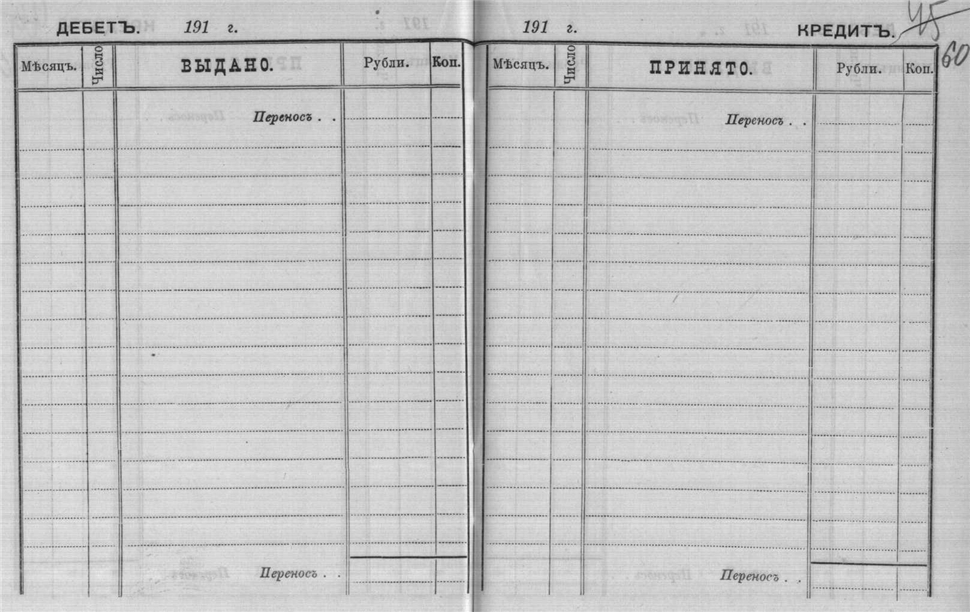 ДЕБЕТЪ. 191 г.
Мѣсяцъ. Число ВЫДАНО. Рубли. Коп.
Переносъ . .
Переносъ . .
191 г. КРЕДИТЪ. 45
60
Мѣсяцъ. Число ПРИНЯТО. Рубли. Коп.
Переносъ . .
Переносъ . .